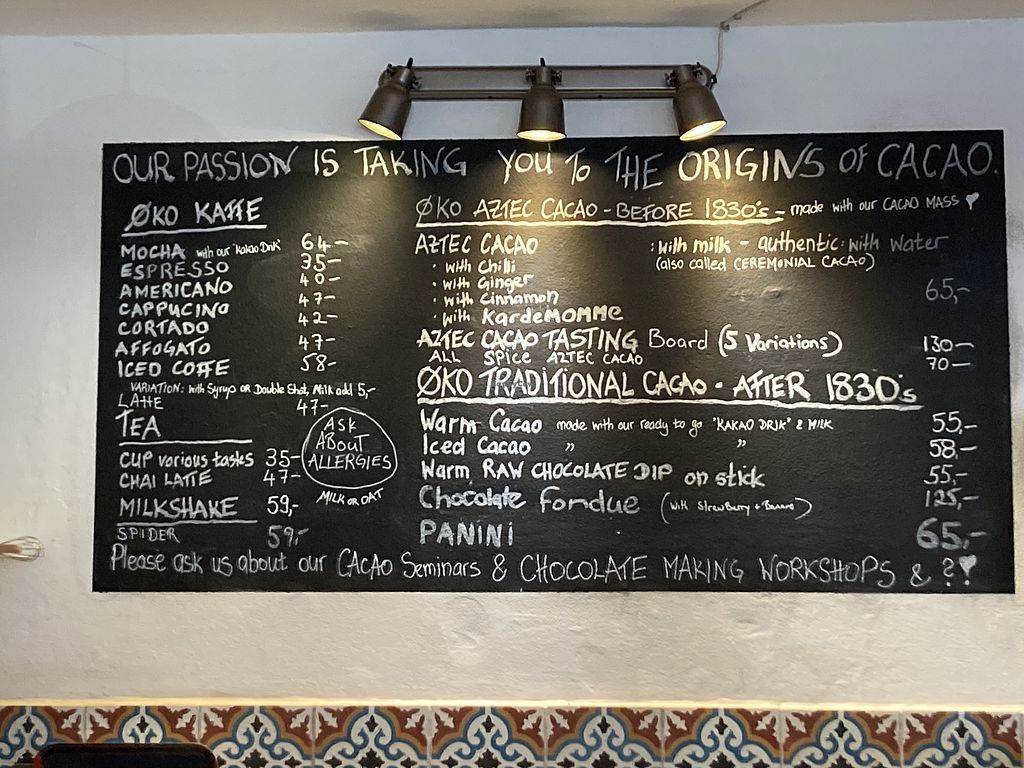 OUR PASSION IS TAKING YOU TO THE ORIGINS OF CACAO.
ØKO KAFFE
MOCHA with our "Kakao Drik" 64-
ESPRESSO 35-
AMERICANO 40-
CAPPUCINO 47-
CORTADO 42-
AFFOGATO 47-
ICED COFFE 58-
VARIATION: with Syrup OR Double Shot, Milk add 5,-
LATTE 47-
TEA
CUP various tastes 35-
CHAI LATTE 47-
ASK
ABOUT
ALLERGIES
MILK OR OAT
MILKSHAKE 59,-
SPIDER 59,-
ØKO AZTEC CACAO - BEFORE 1830's - made with our CACAO MASS
AZTEC CACAO : with milk - authentic: with water
(also called CEREMONIAL CACAO)
• with Chilli
• with Ginger 65,-
• with Cinnamon
• with KardeMOMME
AZTEC CACAO TASTING Board (5 Variations) 130-
ALL SPICE AZTEC CACAO 70-
ØKO TRADITIONAL CACAO - AFTER 1830's
Warm Cacao made with our ready to go "KAKAO DRIK" & MILK 55,-
Iced Cacao " " 58,-
Warm RAW CHOCOLATE DIP on stick 55,-
Chocolate fondue (with StrawBerry + Banana) 125,-
PANINI 65,-
Please ask us about our CACAO Seminars & CHOCOLATE MAKING WORKSHOPS & ?!